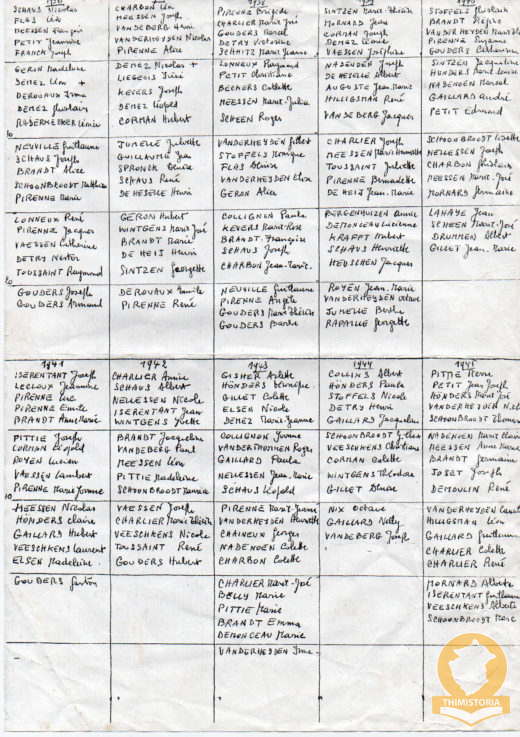 SCHAUS Nicolas
FLAS Léa
MEESSEN François
PETIT Jeannine
FRANCK Joseph
GERON Madeleine
DEMEZ Léon
DEROUAUX Irma
DEMEZ Ghislain
RADERMECKER Léonie
10
NEUVILLE Guillaume
SCHAUS Joseph
BRANDT Alice
SCHOONBROODT Mathieu
PIRENNE Maria
LONNEUX René
PIRENNE Jacques
VAESSEN Catherine
DETRY Nestor
TOUSSAINT Raymond
20
GOUDERS Joseph
GOUDERS Armand
CHARDON Léa
MEESSEN Joseph
VANDEBERG Henri
VANDERHEYDEN Nicolas
PIRENNE Alice
DEMEZ Nicolas
LIEGEOIS
KEVERS Joseph
DEMEZ Léopold
CORMAN Hubert
JUMELLE Juliette
GUILLAUME Jean
SPRONCK Denise
SCHAUS René
DE HESELLE Henri
GERON Hubert
WINTGENS Marie José
BRANDT Marie
DE HEIJ Henri
SINTZEN Georgette
DEROUAUX Emile
PIRENNE René
PIRENNE Brigide
CHARLIER Marie José
GOUDERS Marcel
DETRAY Victorine
SCHMITZ Marie Jeanne
LONNEUX Raymond
PETIT Christiane
BECKERS Colette
MEESSEN Marie-Julia
SCHEEN Roger
VANDERHEYDEN Gilbert
STOFFELS Monique
FLAS Denise
VANDERHEYDEN Elisa
GERON Alice
COLLIGNON Paula
KEVERS Marie-Rose
BRANDT. Françoise
SCHAUS Joseph
CHARBON Jean-Marie.
NEUVILLE Guillaume
PIRENNE Angèle
GOUDERS Marie Thérèse
GOUDERS Berthe
SINTZEN Marie-Thérèse
MORNARD Jean
CORMAN Joseph
DEMEZ Léonie
VAESSEN Joséphine
NADENOEN Joseph
DE HESELLE Albert
AUGUSTE Jean-Marie
HILLIGSMAN René
VAN DE BERG Jacques
CHARLIER Joseph
MEESSEN Marie Henriette
TOUSSAINT Juliette
PIRENNE Bernadette
DE HEIJ Jean-Marie
PERGENHUIZEN Annie
DEMONCEAU Lucienne
KRAFFT Hubert
SCHAUS Henriette
HEUSCHEN Jacques
ROYEN Jean-Marie
VANDERHEYDEN
JUMELLE Berthe
RAPAILLE Georgette
STOFFELS Ghislain
BRANDT
VANDERHEYDEN Marie
PIRENNE Suzanne
GOUDERS Catherine
SINTZEN Jacqueline
HUNDERS Marie Louise
NADENOEN Marcel
GAILLARD André
PETIT Edmond
SCHOONBROODT Lisette
NELLESSEN Joseph
CHARBON Ghislain
MEESSEN Marie-José
MORNARD Germaine
LAHAYE Jean
SCHEEN Marie-José
DRUMMEN Albert
GILLET Jean Marie
1941
ISERENTANT Joseph
LECLOUX Jeannine
PIRENNE Luc
PIRENNE Emile
BRANDT Anne Marie
PITTIE Joseph
CORMAN Léopold
DOVEN Lucien
VAESSEN Lambert
PIRENNE Marie Jeanne
10
MEESSEN Nicolas
HÖNDERS Claire
GAILLARD Hubert
VEESCHKENS Laurent
ELSEN Madeleine.
GOUDERS Gaston
1942
CHARLIER Annie
SCHAUS Albert
NELLESSEN Nicole
ISERENTANT Jean
WINTGENS Yvette
BRANDT Jacqueline
VANDEBERG Paul
MEESSEN Léon
PITTIE Madeleine
SCHOONBROODT
VAESSEN Joseph
CHARLIER Marie Thérèse
VEESCHKENS Nicole
TOUSSAINT René
GOUDERS Hubert
1943
GISHER Arlette
HÖNDERS Monique.
GILLET Colette
ELSEN Nicole
DEMEZ Marie-Jeanne
COLLIGNON Yvonne
VANDERTHOMMEN Roger
GAILLARD Paula
NELLESSEN Jean-Marie
SCHAUS Léopold
PIRENNE Marie-Jeanne
VANDERHEYDEN Henriette
CHAINEUX Georges
NADENOEN Colette
CHARBON Colette
CHARLIER Marie-José
BELLY Marie
PITTIE Marie
BRANDT Emma
DEMONCEAU Marie
VANDERHEYDEN Irma.
1944
COLLINS Albert
HÖNDERS Paula
STOFFELS Nicole
DETRY Henri
GAILLARD Jacqueline
SCHOONBROODT Gilbert
VEESCHKENS Christiane
CORMAN Odette
WINTGENS Théodore
GILLET Denise
NIX Octave
GAILLARD Nelly
VANDEBERG Joseph
1945
PITTIE Pierre
PETIT Jean Joseph
HÖNDERS Marie José
VANDERHEYDEN
SCHOONBROODT Thomas
NADENOEN Marie Claire
MEESSEN Anne Marie
BRANDT Germaine
JOSET Joseph
DEMOULIN René
VANDERHEYDEN
HILLIGSMAN Léon
GAILLARD Guillaume
CHARLIER Colette
CHARLIER René
MORNARD Alberte
ISERENTANT Guillaume
VEESCHKENS Alberte
SCHOONBROODT Marc
THIMISTORIA